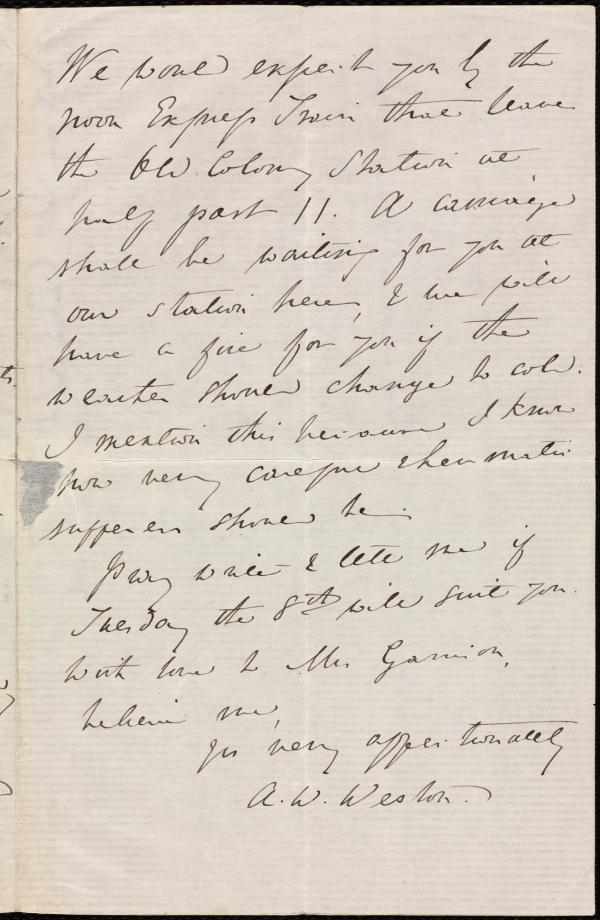 We would expect you by the
noon Express Train that leaves
the Old Colony Station at
half past 11. A carriage
shall be waiting for you at
our station here, & we will
have a fire for you if the
weather should change to cold.
I mention this because I know
how very careful rheumatic
sufferers should be.
Pray write & tell me if
Tuesday the 8th will suit you.
With love to Mrs Garrison,
believe me,
yrs very affectionately
A. W. Weston.